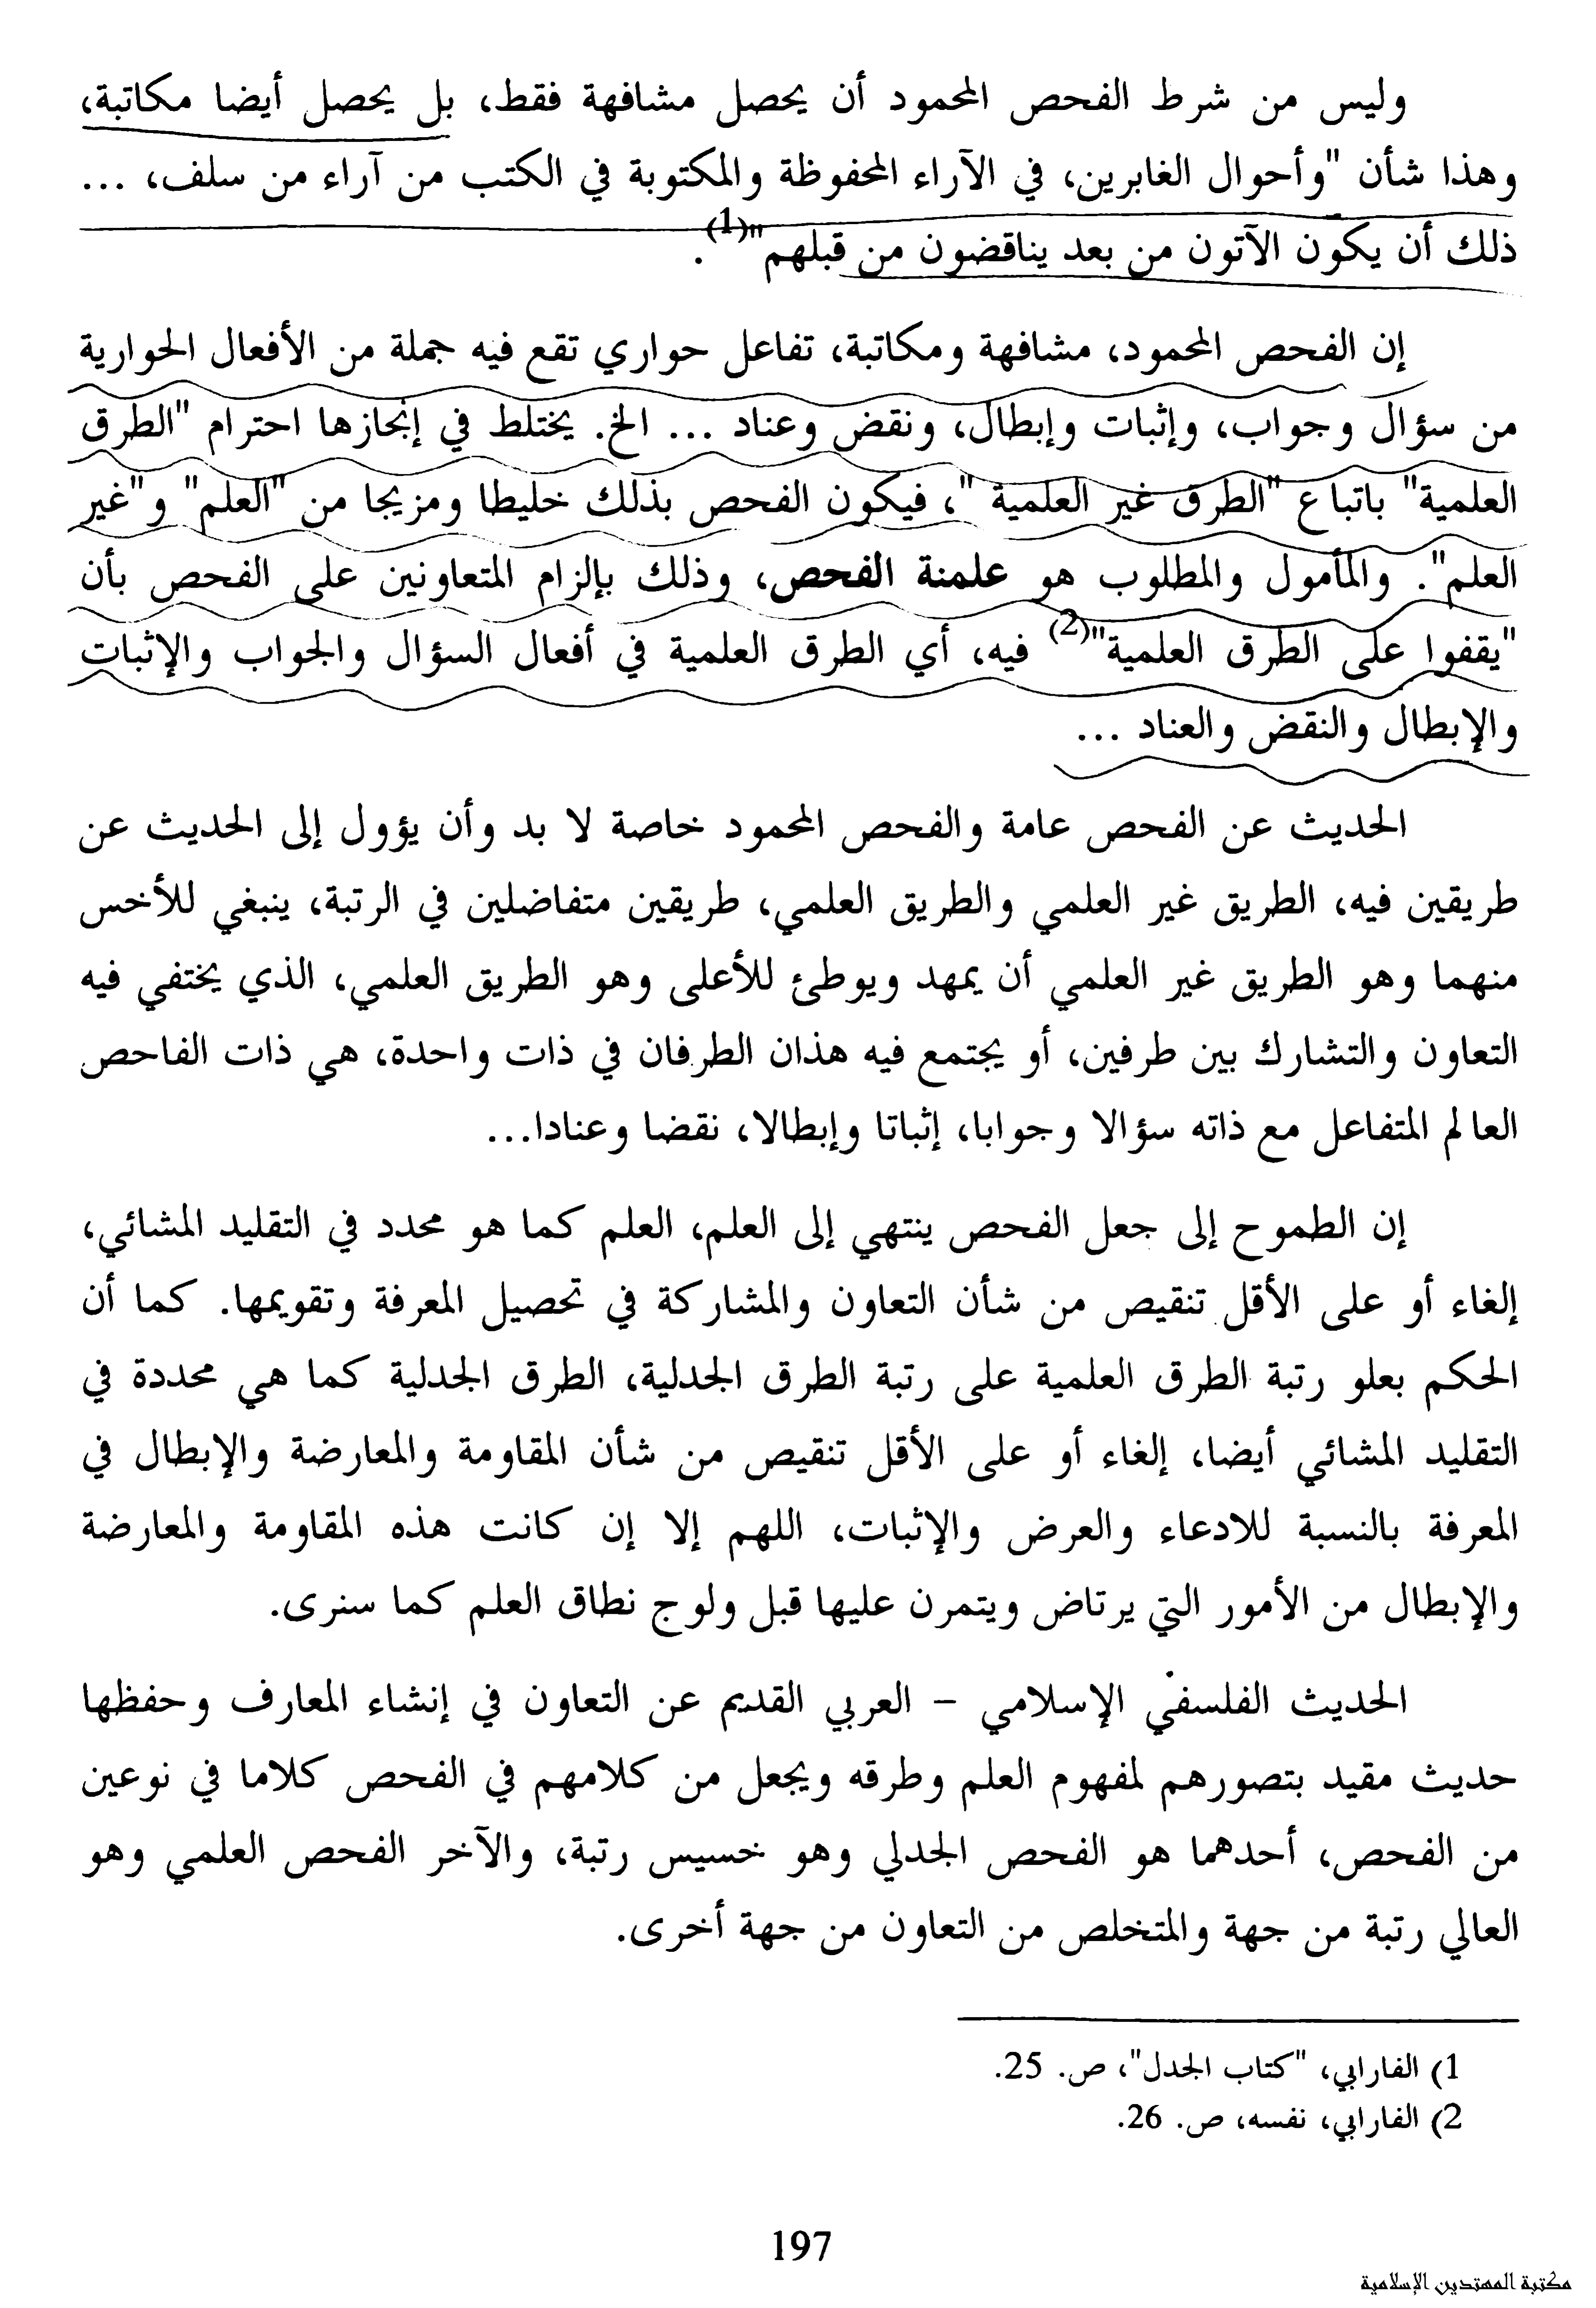 وليس من شرط الفحص المحمود أن يحصل مشافهة فقط، بل يحصل أيضا مكاتبة،
وهذا شأن "وأحوال الغابرين، في الآراء المحفوظة والمكتوبة في الكتب من آراء من سلف، ...
ذلك أن يكون الآتون من بعد يناقضون من قبلهم"(1).
إن الفحص المحمود، مشافهة ومكاتبة، تفاعل حواري تقع فيه جملة من الأفعال الحوارية
من سؤال وجواب، وإثبات وإبطال، ونقض وعناد ... الخ. يختلط في إنجازها احترام "الطرق
العلمية" باتباع "الطرق غير العلمية "، فيكون الفحص بذلك خليطا ومزيجا من "العلم" و"غير
العلم". والمأمول والمطلوب هو علمنة الفحص، وذلك بإلزام المتعاونين على الفحص بأن
"يقفوا على الطرق العلمية"(2) فيه، أي الطرق العلمية في أفعال السؤال والجواب والإثبات
والإبطال والنقض والعناد ...
الحديث عن الفحص عامة والفحص المحمود خاصة لا بد وأن يؤول إلى الحديث عن
طريقين فيه، الطريق غير العلمي والطريق العلمي، طريقين متفاضلين في الرتبة، ينبغي للأخس
منهما وهو الطريق غير العلمي أن يمهد ويوطئ للأعلى وهو الطريق العلمي، الذي يختفي فيه
التعاون والتشارك بين طرفين، أو يجتمع فيه هذان الطرفان في ذات واحدة، هي ذات الفاحص
العالم المتفاعل مع ذاته سؤالا وجوابا، إثباتا وإبطالا، نقضا وعنادا...
إن الطموح إلى جعل الفحص ينتهي إلى العلم، العلم كما هو محدد في التقليد المشائي،
إلغاء أو على الأقل تنقيص من شأن التعاون والمشاركة في تحصيل المعرفة وتقويمها. كما أن
الحكم بعلو رتبة الطرق العلمية على رتبة الطرق الجدلية، الطرق الجدلية كما هي محددة في
التقليد المشائي أيضا، إلغاء أو على الأقل تنقيص من شأن المقاومة والمعارضة والإبطال في
المعرفة بالنسبة للادعاء والعرض والإثبات، اللهم إلا إن كانت هذه المقاومة والمعارضة
والإبطال من الأمور التي يرتاض ويتمرن عليها قبل ولوج نطاق العلم كما سنرى.
الحديث الفلسفي الإسلامي – العربي القديم عن التعاون في إنشاء المعارف وحفظها
حديث مقيد بتصورهم لمفهوم العلم وطرقه ويجعل من كلامهم في الفحص كلاما في نوعين
من الفحص، أحدهما هو الفحص الجدلي وهو خسيس رتبة، والآخر الفحص العلمي وهو
العالي رتبة من جهة والمتخلص من التعاون من جهة أخرى.
1) الفارابي، "كتاب الجدل"، ص. 25.
2) الفارابي، نفسه، ص. 26.
197
مكتبة المهتدين الإسلامية